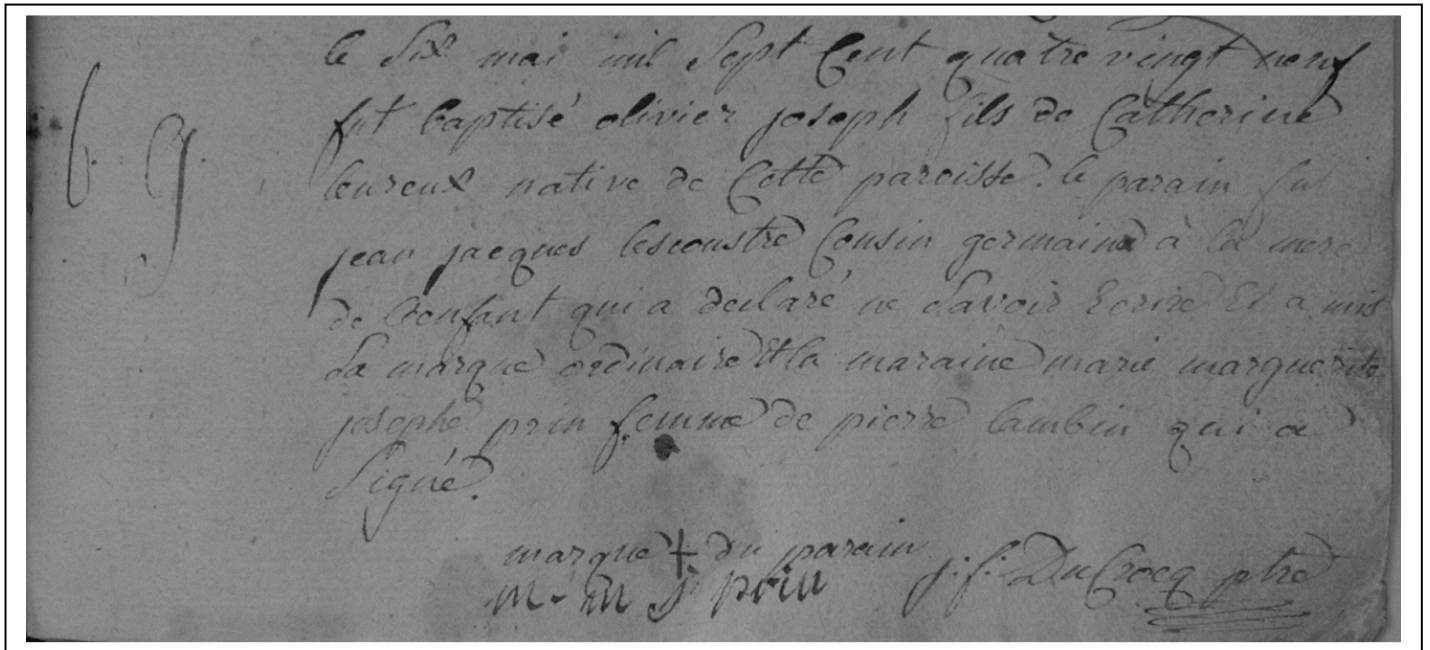 le six mai mil Sept Cent quatre vingt neuf
b. g. fut baptisé olivier joseph fils de Catherine
leureux native de Cette paroisse. le parain fut
jean jacques lescoustre Cousin germain à la mere
de lenfant qui a declaré ne Savoir Ecrire Et a mis
Sa marque ordinaire Et la maraine marie marguerite
josephe prin femme de pierre lambin qui a
Signé.
marque + du parain
m - m j prin j: f: DuCrocq ptre